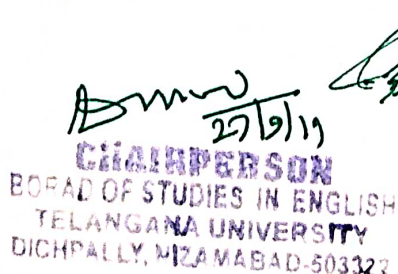 27/9/19
CHAIRPERSON
BOFAD OF STUDIES IN ENGLISH
TELANGANA UNIVERSITY
DICHPALLY, NIZAMABAD-503323